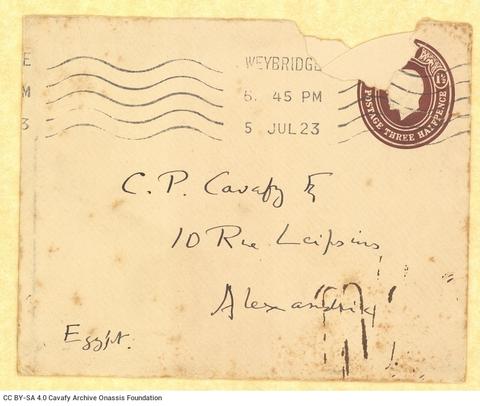 E
M
3
WEYBRIDGE
6. 45 PM
5 JUL 23
1½
POSTAGE THREE HALFPENCE
C. P. Cavafy
10 Rue Lepsius
Alexandria
Egypt.
CC BY-SA 4.0 Cavafy Archive Onassis Foundation